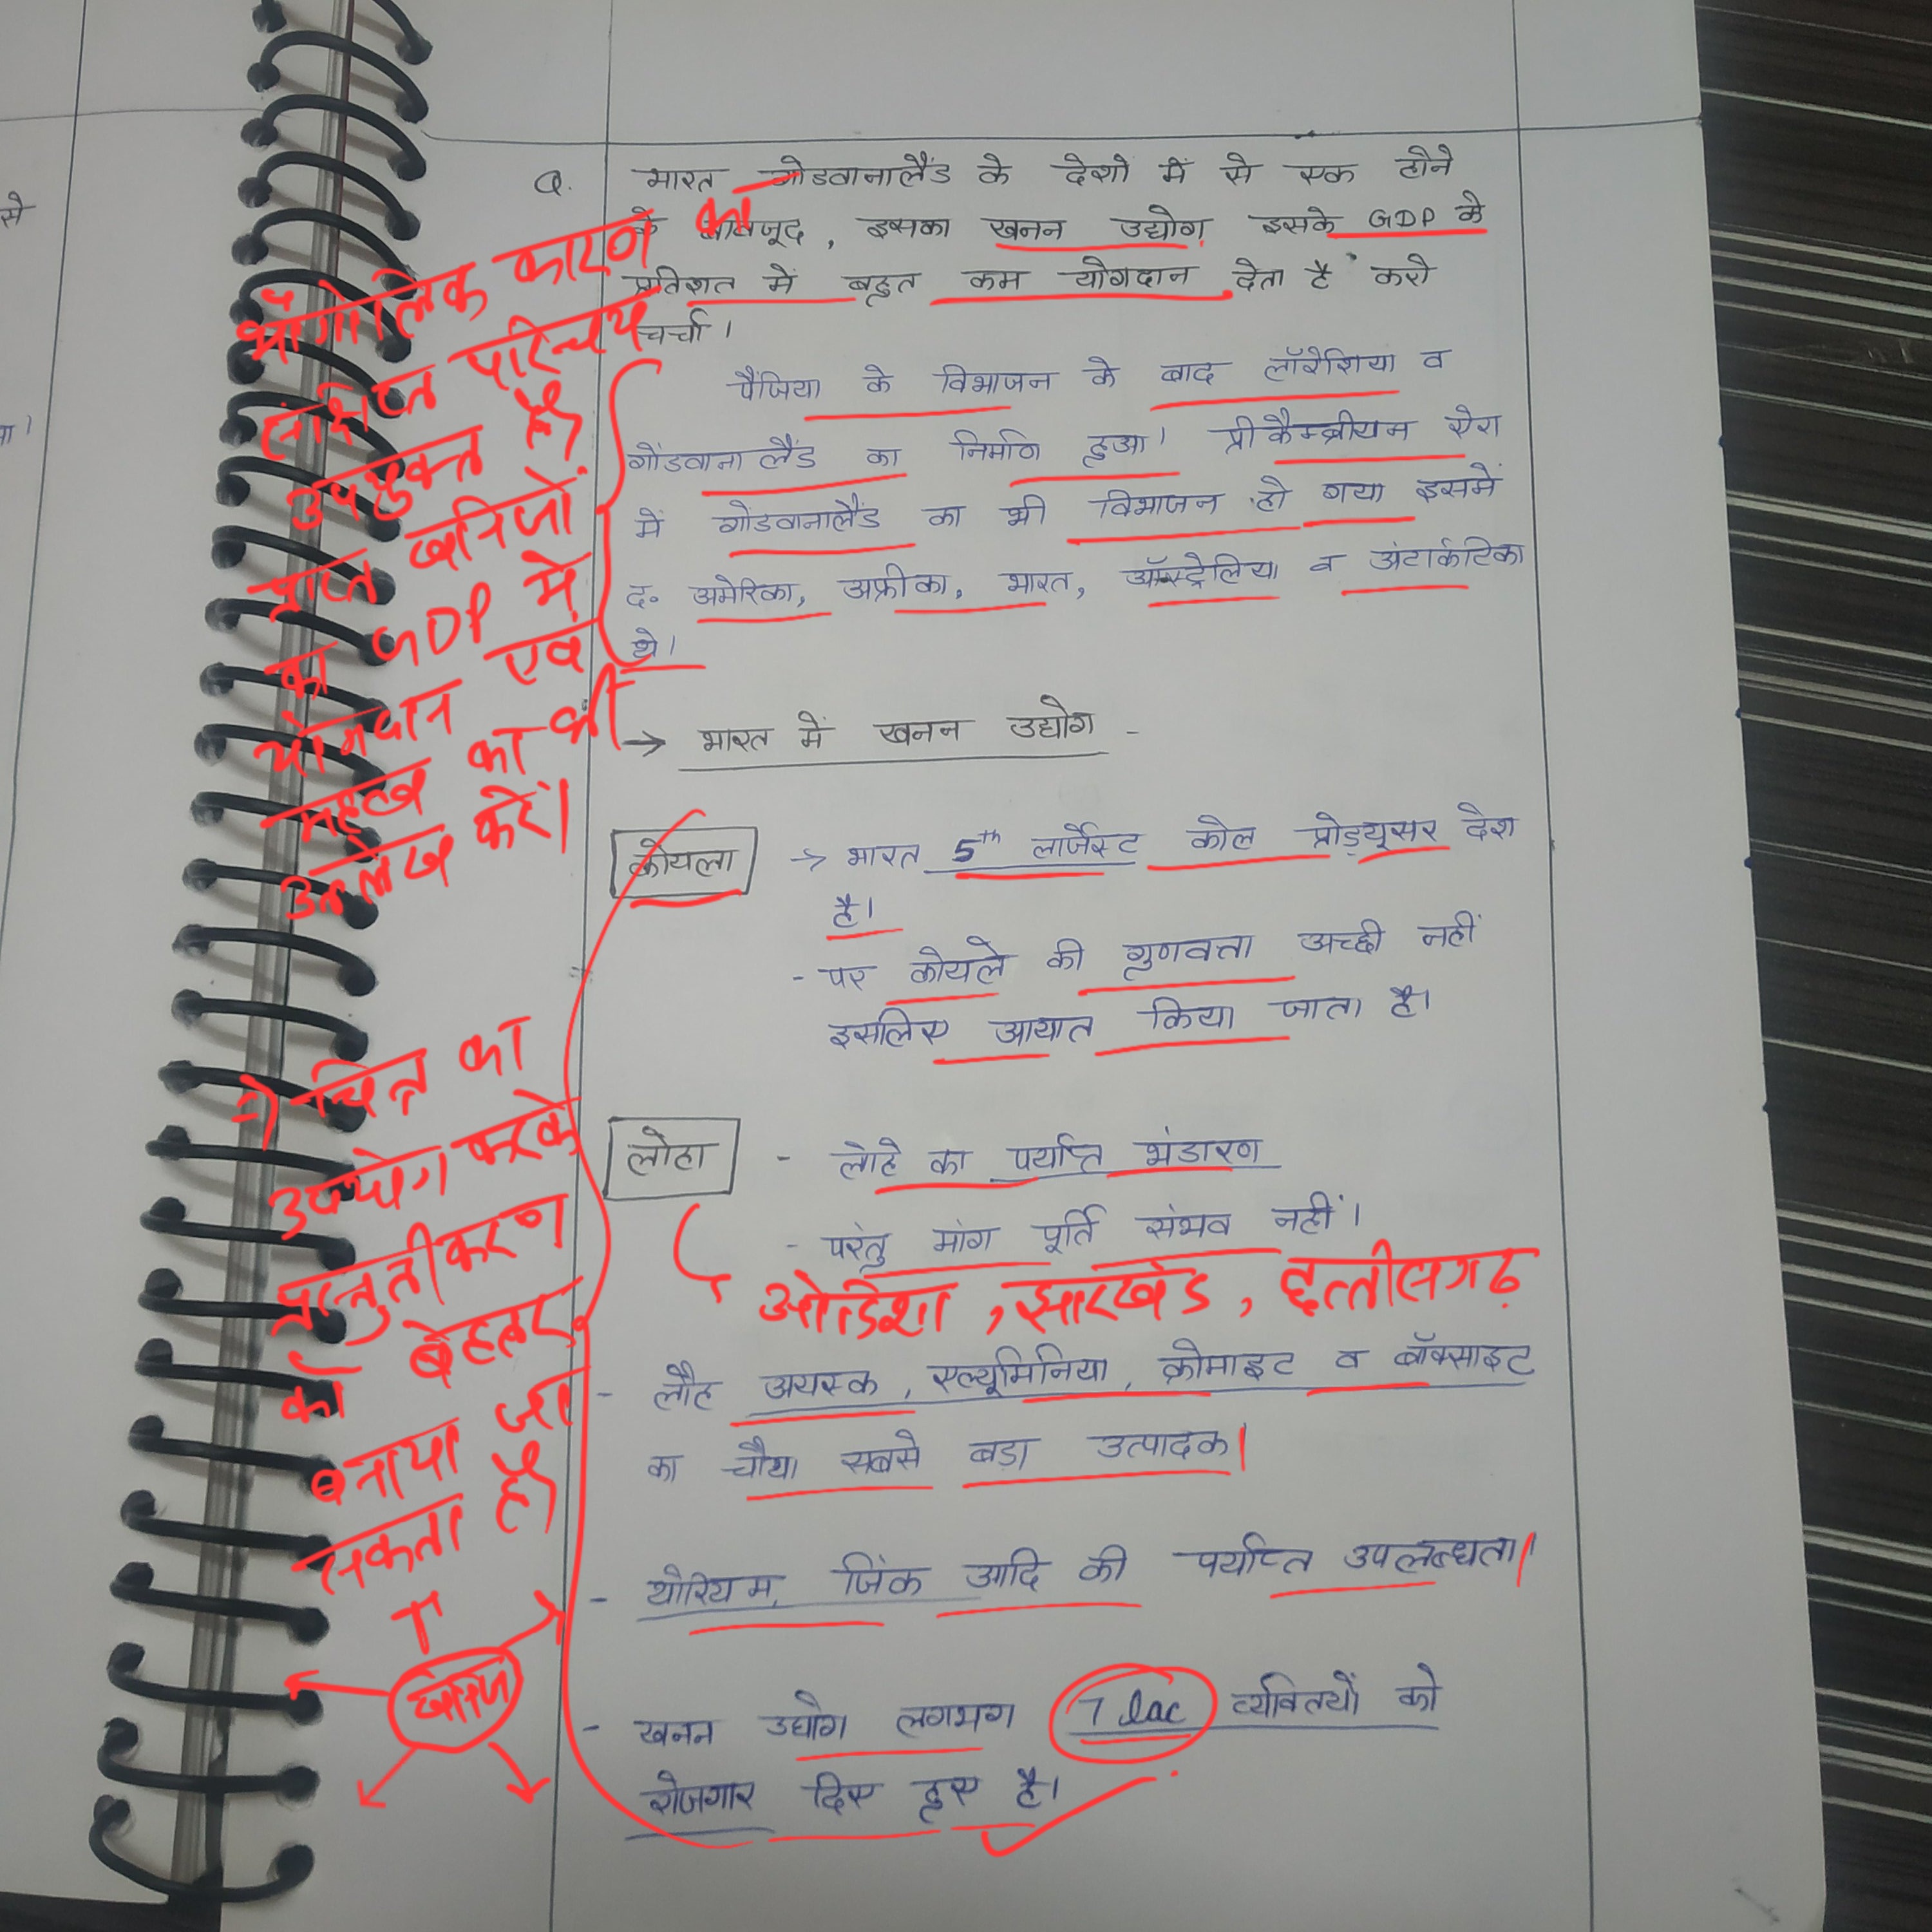 से
या।
Q. भारत गोंडवानालैंड के देशो में से एक होने
के बावजूद, इसका खनन उद्योग इसके GDP के
प्रतिशत में बहुत कम योगदान देता है करो
चर्चा।
पैंजिया के विभाजन के बाद लॉरेशिया व
गोंडवाना लैंड का निर्माण हुआ। प्री कैम्ब्रीयन ऐरा
में गोंडवानालैंड का भी विभाजन हो गया इसमें
द॰ अमेरिका, अफ्रीका, भारत, ऑस्ट्रेलिया व अंटार्कटिका
थे।
→ भारत में खनन उद्योग -
कोयला → भारत 5th लार्जेस्ट कोल प्रोड्यूसर देश
है।
- पर कोयले की गुणवत्ता अच्छी नहीं
इसलिए आयात किया जाता है।
लोहा - लोहे का पर्याप्त भंडारण
- परंतु मांग पूर्ति संभव नहीं।
ओडिशा, झारखंड, छत्तीसगढ़
- लौह अयस्क, एल्यूमिनिया, क्रोमाइट व बॉक्साइट
का चौथा सबसे बड़ा उत्पादक।
- थोरियम, जिंक आदि की पर्याप्त उपलब्धता।
- खनन उद्योग लगभग 7 lac व्यक्तियों को
रोजगार दिए हुए है।
भौगोलिक कारण का
संक्षिप्त परिचय
उपयुक्त है।
प्राप्त खनिजों
का GDP में
योगदान एवं
महत्व का भी
उल्लेख करें।
⇒ चित्र का
उपयोग करके
प्रस्तुतीकरण
को बेहतर
बनाया जा
सकता है।
खनिज